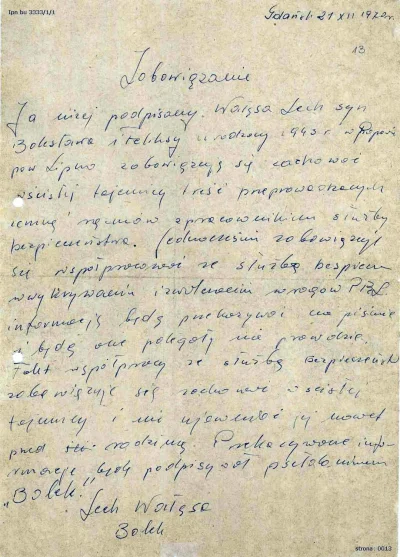 Ipn bu 3333/1/1
Gdańsk 21 XII 1970 r.
13
Zobowiązanie
Ja niżej podpisany. Wałęsa Lech syn
Bolesława i Feliksy urodzony 1943 r w Popowie
pow Lipno zobowiązują się zachować
w ścisłej tajemnicy treść przeprowadzonych
ze mną rozmów z pracownikiem służby
bezpieczeństwa. Jednocześnie zobowiązuję
się współpracować ze służbą bezpiecz
w wykrywaniu i zwalczaniu wrogów PRL
informacją będę przekazywać na piśmie
i będą one polegały na prawdzie.
Fakt współpracy ze służbą bezpieczeństwa
zobowiązuje się zachować w ścisłej
tajemnicy i nie ujawniać jej nawet
przed rodziną. Przekazywane info-
rmacje będę podpisywał pseudonimem
„Bolek."
Lech Wałęsa
Bolek
strona : 0013